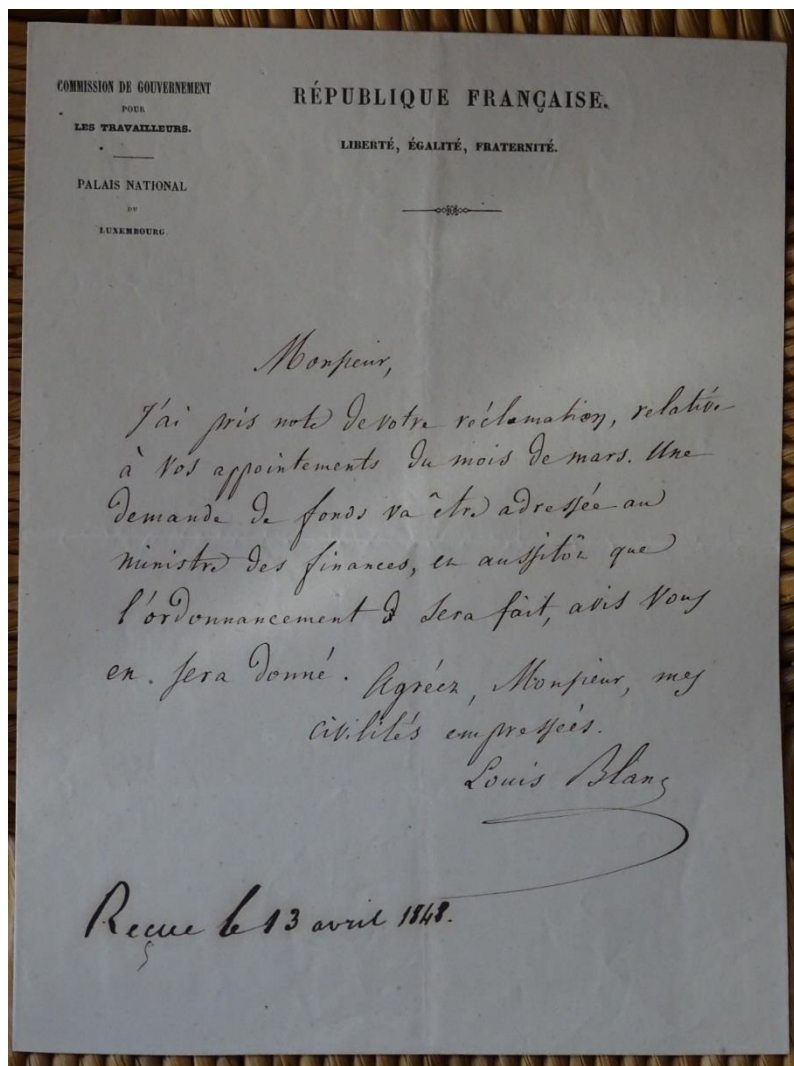 COMMISSION DE GOUVERNEMENT
POUR
LES TRAVAILLEURS.
PALAIS NATIONAL
DU
LUXEMBOURG
RÉPUBLIQUE FRANÇAISE.
LIBERTÉ, ÉGALITÉ, FRATERNITÉ.
Monsieur,
J'ai pris note de votre réclamation, relative
à vos appointements du mois de mars. Une
demande de fonds va être adressée au
ministre des finances, et aussitôt que
l'ordonnancement sera fait, avis vous
en sera donné. Agréez, Monsieur, mes
civilités empressées.
Louis Blanc
Reçue le 13 avril 1848.